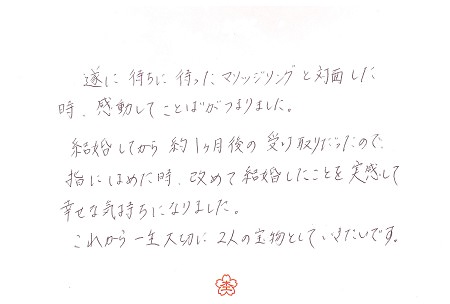 遂に 待ちに 待った マリッジリング と 対面した
時、感動して ことばがつまりました。
結婚してから 約1ヶ月後の 受け取りだったので、
指にはめた時、改めて結婚したことを実感して
幸せな気持ちになりました。
これから一生大切に 2人の宝物としていきたいです。